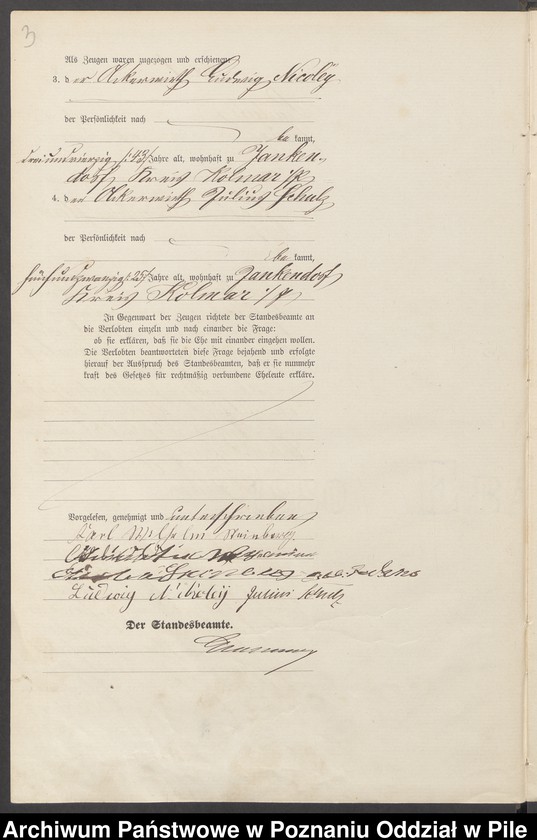 3
Als Zeugen waren zugezogen und erschienen:
3. der Ackerwirth Ludwig Nicoley
der Persönlichkeit nach
be kannt,
dreiundvierzig /:43/ Jahre alt, wohnhaft zu Janken-
dorf, Kreis Kolmar i/P
4. der Ackerwirth Julius Schulz
der Persönlichkeit nach
be kannt,
fünfundzwanzig /:25/ Jahre alt, wohnhaft zu Jankendorf
Kreis Kolmar i/P
In Gegenwart der Zeugen richtete der Standesbeamte an
die Verlobten einzeln und nach einander die Frage:
ob sie erklären, daß sie die Ehe mit einander eingehen wollen.
Die Verlobten beantworteten diese Frage bejahend und erfolgte
hierauf der Ausspruch des Standesbeamten, daß er sie nunmehr
kraft des Gesetzes für rechtmäßig verbundene Eheleute erkläre.
Vorgelesen, genehmigt und unterschrieben
Karl Wilhelm Steinberg
Ludwig Nicoley Julius Schulz
Der Standesbeamte.
Archiwum Państwowe w Poznaniu Oddział w Pile